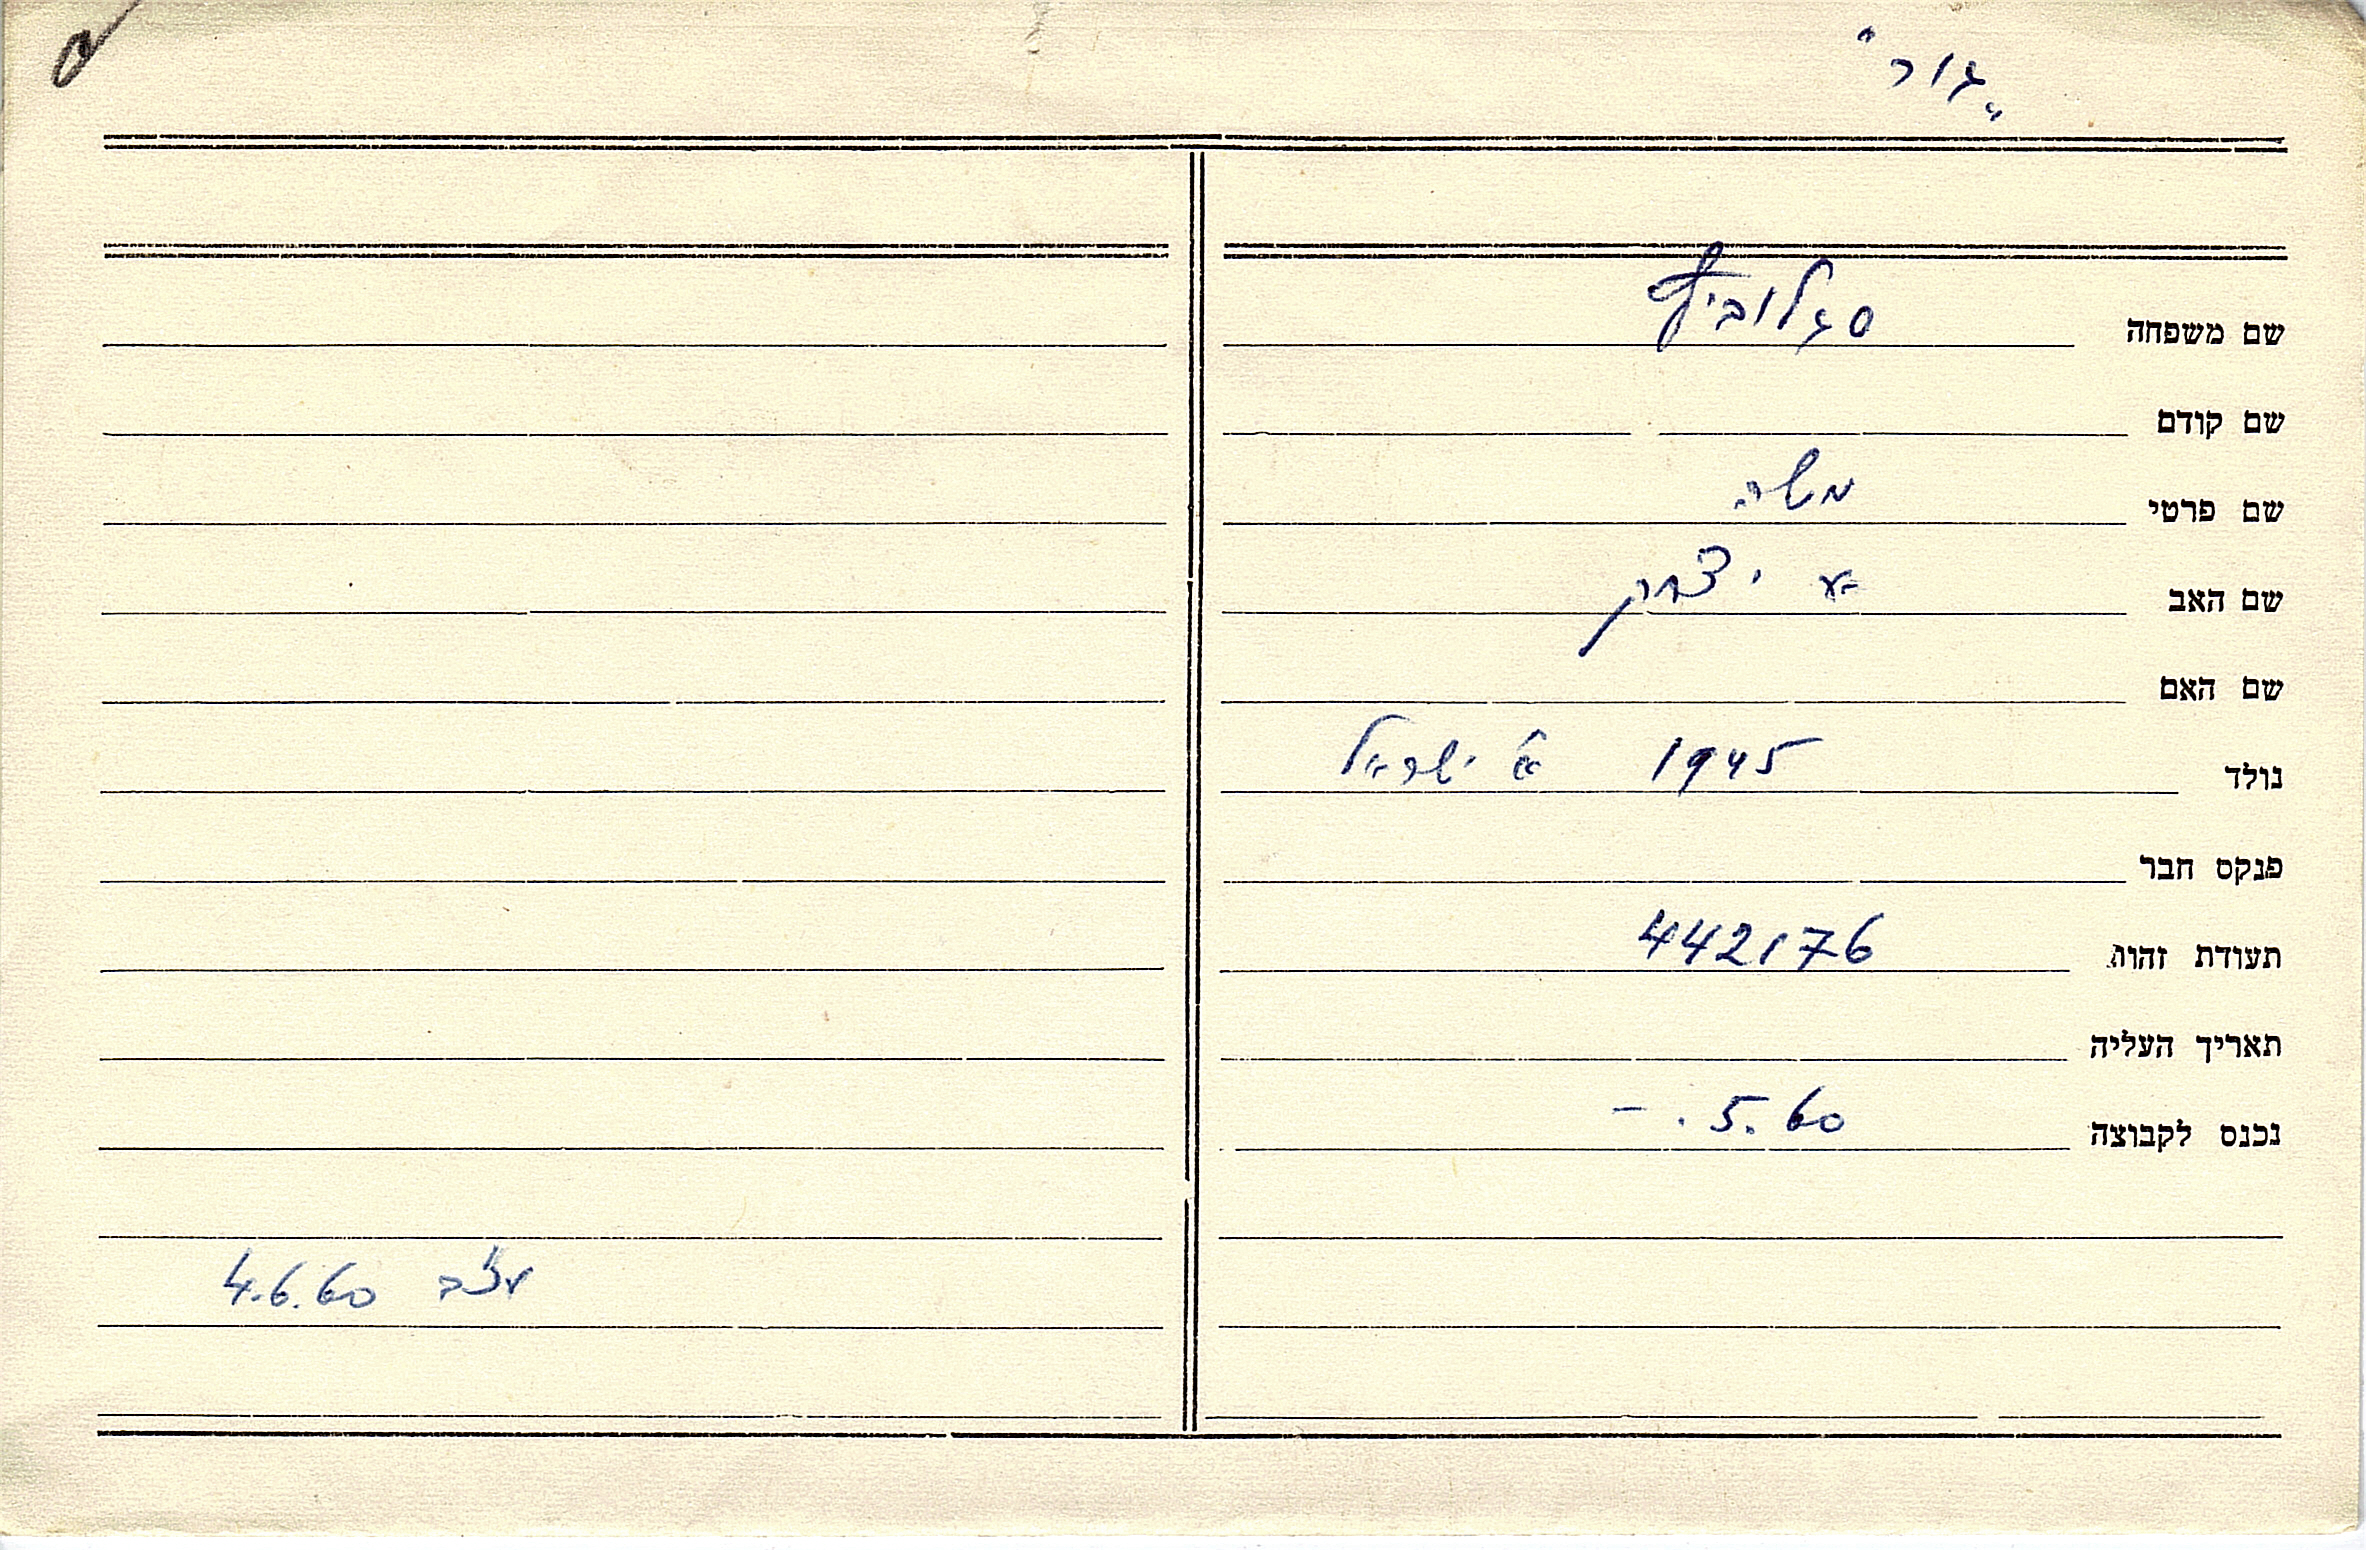 „גור"
שם משפחה סגלוביץ
שם קודם
שם פרטי משה
שם האב יצחק
שם האם
נולד 1945 א' ישראל
פנקס חבר
תעודת זהות 442176
תאריך העליה
נכנס לקבוצה 5.60. –
עזב 4.6.60